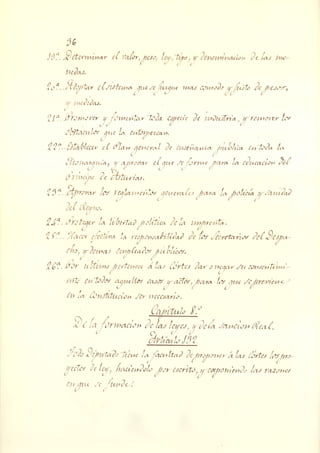 36
19ª. Determinar el valor, peso, ley, tipo, y denominacion de las mo-
nedas.
20ª. Adoptar el sistema que se juzgue mas comodo y justo de pesos,
y medidas.
21ª. Promover y fomentar toda especie de industria, y remover los
obstaculos que la entorpezcan.
22ª. Establecer el Plan general de enseñanza pública en toda la
Monarquía, y aprovar el que se forme para la educacion del
Príncipe de Asturias.
23ª. Aprovar los reglamentos generales para la policía y sanidad
del Reyno.
24ª. Proteger la libertad política de la imprenta.
25ª. Hacer efectiva la responsabilidad de los Secretarios del Despa-
cho, y demas empleados públicos.
26ª. Por ultimo pertenece á las Córtes dar o negar su consentimi-
ento en todos aquellos casos y actos, para los que se previene
en la Constitucion ser necesario.
Capitulo 8.º
De la formacion de las leyes, y de la sancion Real.
Articulo 132
Todo Diputado tiene la facultad de proponer á las Córtes los pro-
yectos de ley, haciendolo por escrito, y exponiendo las razones
en que se funde.